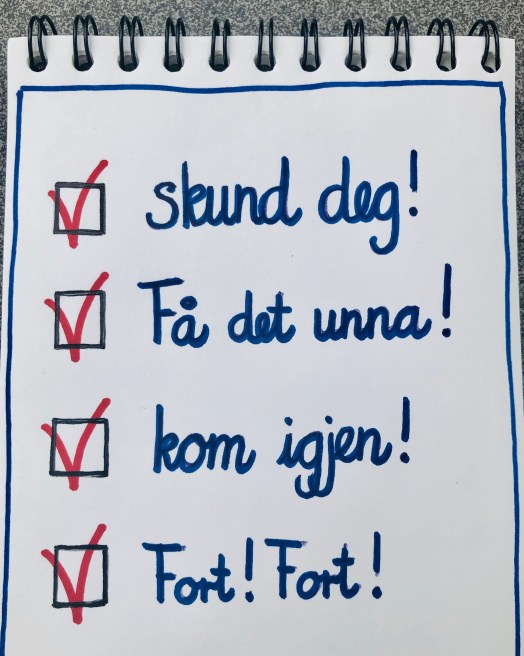 skund deg!
Få det unna!
kom igjen!
Fort! Fort!